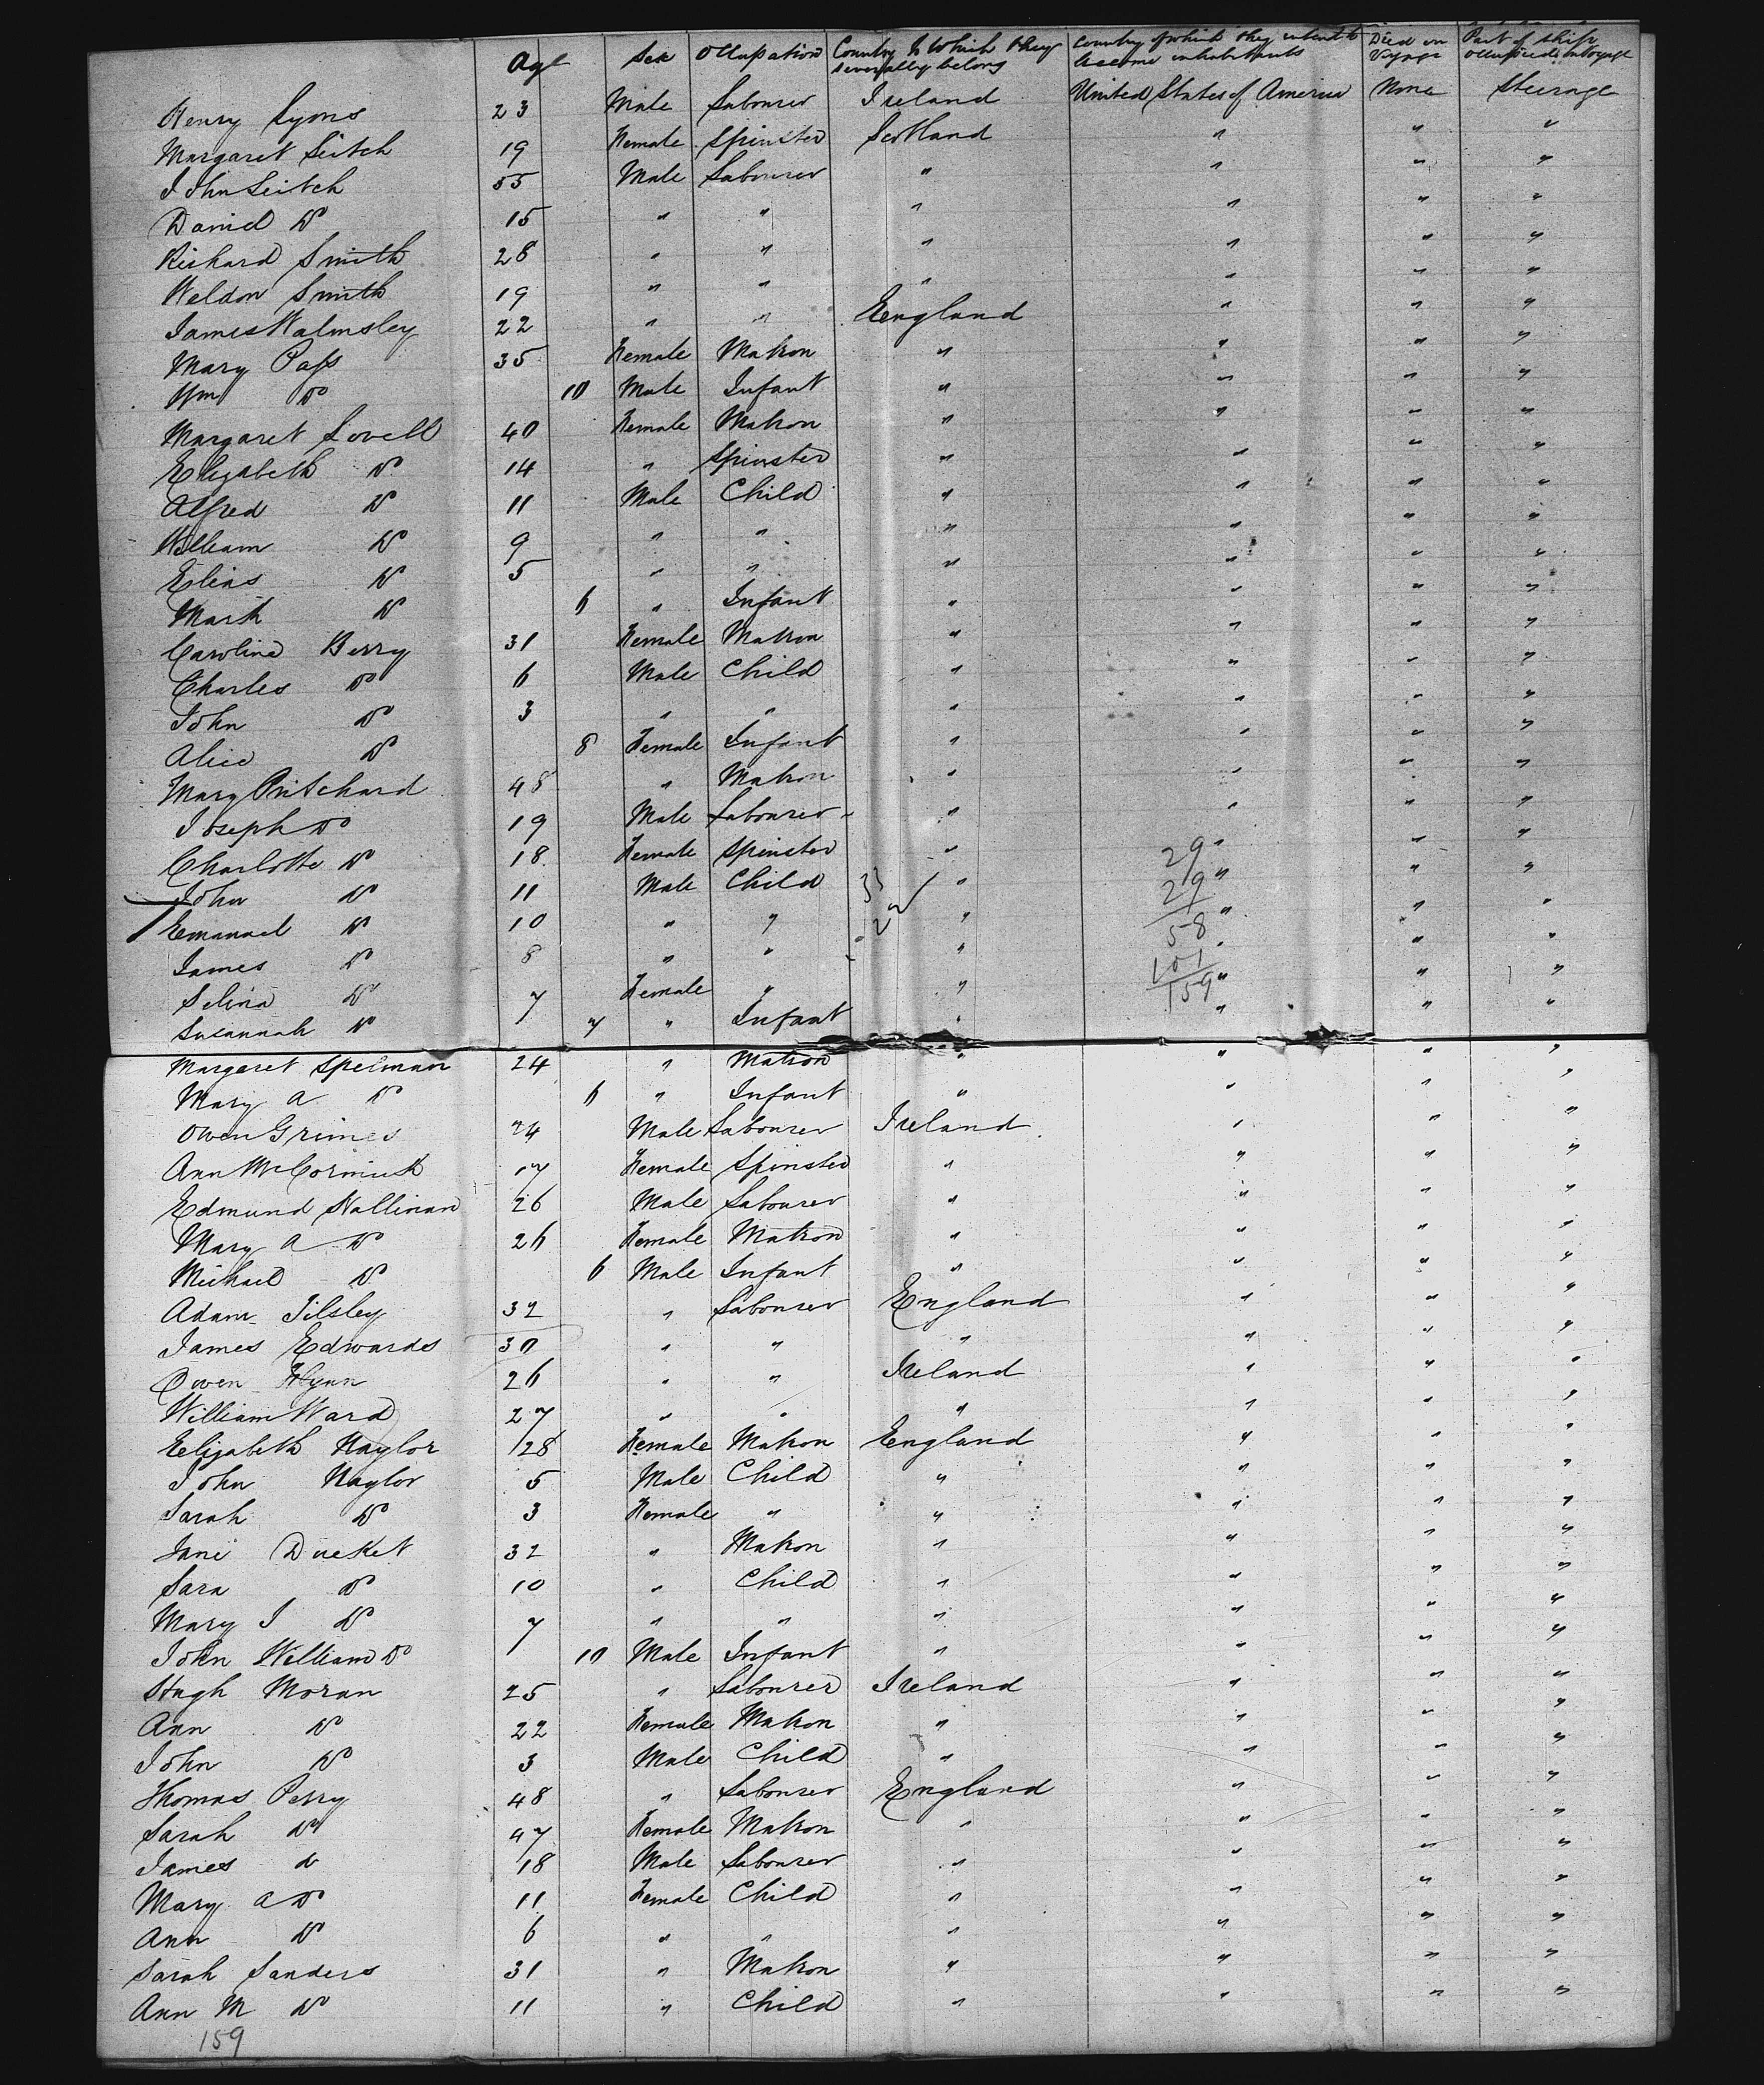 Age Sex Occupation Country to which they severally belong Country of which they intend to become inhabitants Died on Voyage Part of Ship occupied in voyage
Henry Lyons 23 Male Labourer Ireland United States of America None Steerage
Margaret Leitch 19 Female Spinster Scotland " " "
John Leitch 55 Male Labourer " " " "
Daniel Do 15 " " " " " "
Richard Smith 28 " " " " " "
Weldon Smith 19 " " " " " "
James Walmsley 22 " " England " " "
Mary Pass 35 Female Matron " " " "
Wm Do 10 Male Infant " " " "
Margaret Lovell 40 Female Matron " " " "
Elizabeth Do 14 " Spinster " " " "
Alfred Do 11 Male Child " " " "
William Do 9 " " " " " "
Elias Do 5 " " " " " "
Mark Do 6 " Infant " " " "
Caroline Berry 31 Female Matron " " " "
Charles Do 6 Male Child " " " "
John Do 3 " " " " " "
Alice Do 8 Female Infant " " " "
Mary Pritchard 48 " Matron " " " "
Joseph Do 19 Male Labourer " " " "
Charlotte Do 18 Female Spinster " 29 " " "
John Do 11 Male Child 33 " 29 " " "
Emanuel Do 10 " " 22 " 58 " " "
James Do 8 " " " 101 " " "
Selina Do 7 Female " " 159 " " "
Susannah Do 7 " Infant " " " "
Margaret Spelman 24 " Matron " " " "
Mary A Do 6 " Infant " " " "
Owen Grimes 24 Male Labourer Ireland " " "
Ann McCormick 17 Female Spinster " " " "
Edmund Nallinan 26 Male Labourer " " " "
Mary A Do 26 Female Matron " " " "
Michael Do 6 Male Infant " " " "
Adam Tilsley 32 " Labourer England " " "
James Edwards 30 " " " " " "
Owen Flynn 26 " " Ireland " " "
William Ward 27 " " " " " "
Elizabeth Naylor 28 Female Matron England " " "
John Naylor 5 Male Child " " " "
Sarah Do 3 Female " " " " "
Jane Ducket 32 " Matron " " " "
Sara Do 10 " Child " " " "
Mary J Do 7 " " " " " "
John William Do 10 Male Infant " " " "
Hugh Moran 25 " Labourer Ireland " " "
Ann Do 22 Female Matron " " " "
John Do 3 Male Child " " " "
Thomas Perry 48 " Labourer England " " "
Sarah Do 47 Female Matron " " " "
James do 18 Male Labourer " " " "
Mary A Do 11 Female Child " " " "
Ann Do 6 " " " " " "
Sarah Sanders 31 " Matron " " " "
Ann M Do 11 " Child " " " "
159